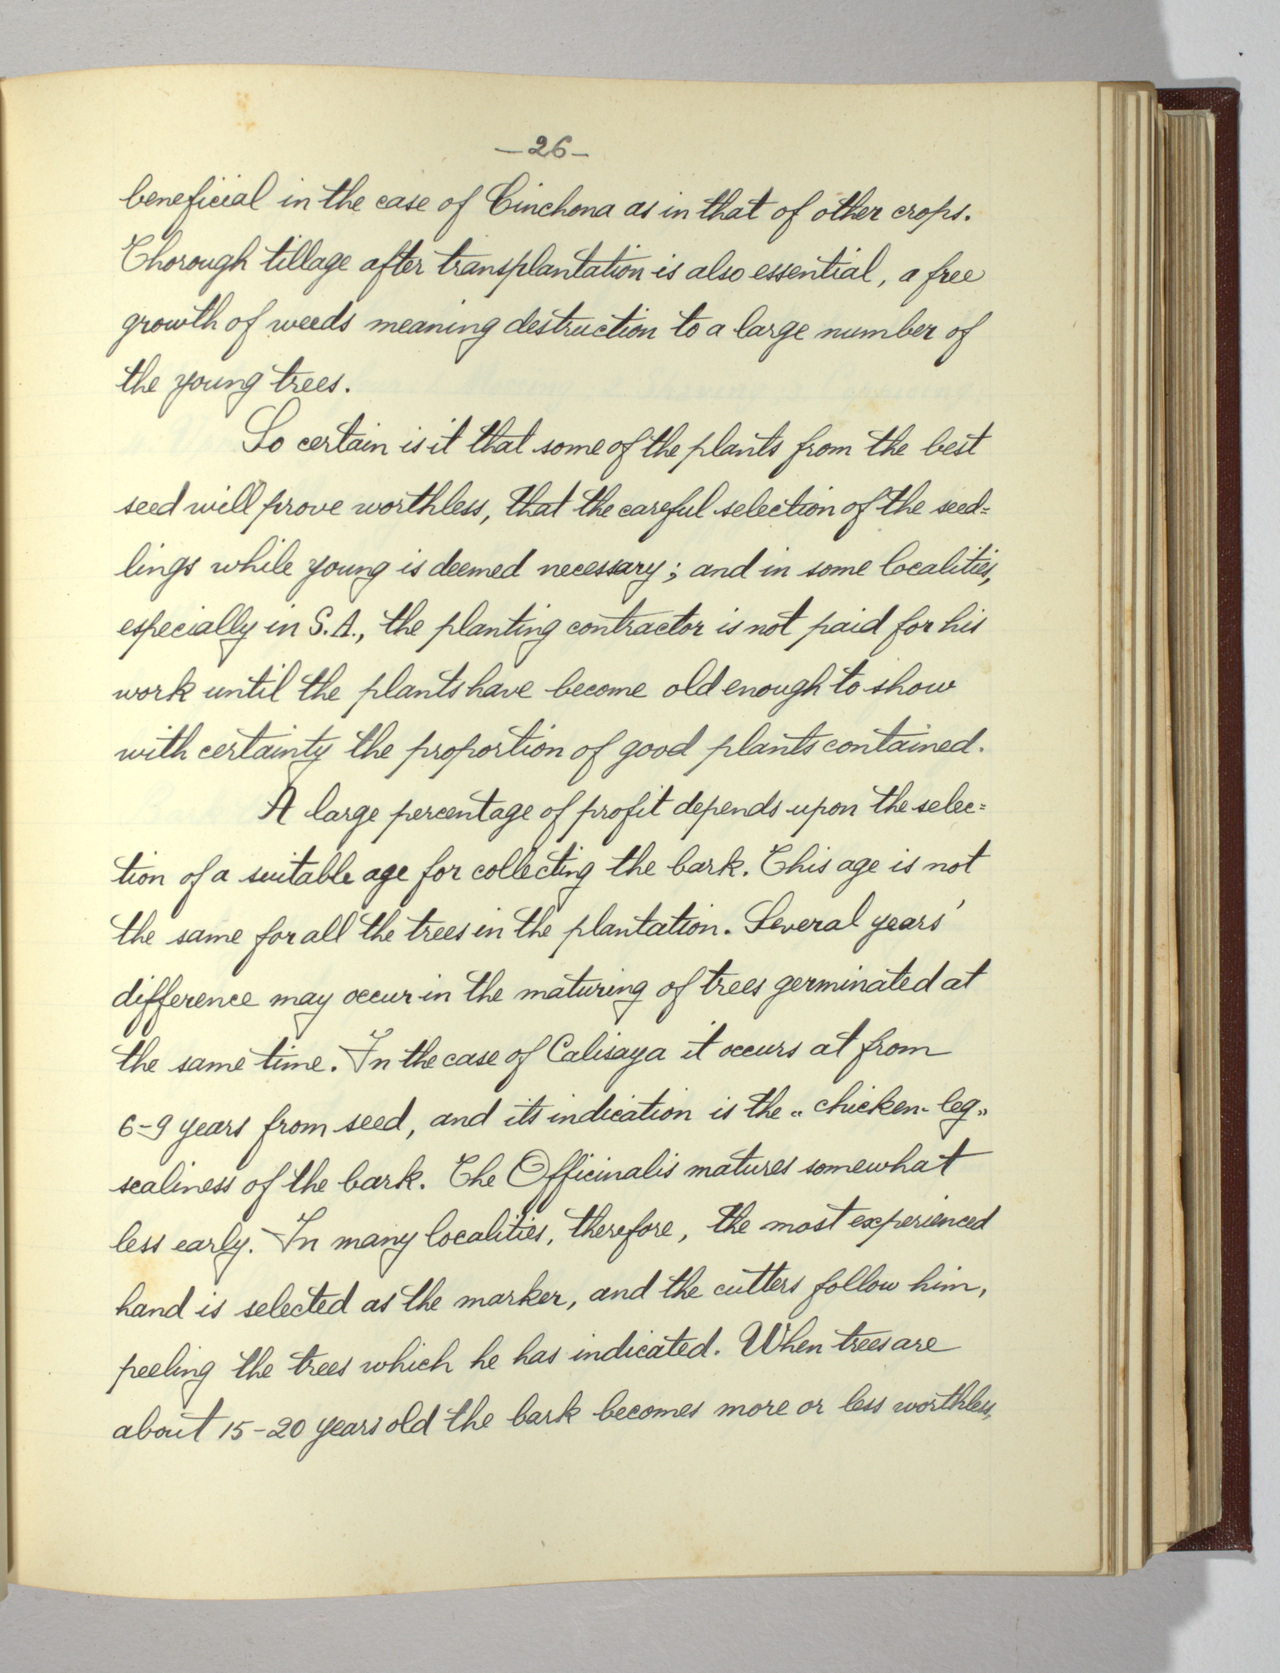 —26—
beneficial in the case of Cinchona as in that of other crops.
Thorough tillage after transplantation is also essential, a free
growth of weeds meaning destruction to a large number of
the young trees.
So certain is it that some of the plants from the best
seed will prove worthless, that the careful selection of the seed=
lings while young is deemed necessary; and in some localities,
especially in S.A., the planting contractor is not paid for his
work until the plants have become old enough to show
with certainty the proportion of good plants contained.
A large percentage of profit depends upon the selec=
tion of a suitable age for collecting the bark. This age is not
the same for all the trees in the plantation. Several years'
difference may occur in the maturing of trees germinated at
the same time. In the case of Calisaya it occurs at from
6-9 years from seed, and its indication is the „chicken-leg„
scaliness of the bark. The Officinalis matures somewhat
less early. In many localities, therefore, the most experienced
hand is selected as the marker, and the cutters follow him,
peeling the trees which he has indicated. When trees are
about 15-20 years old the bark becomes more or less worthless,